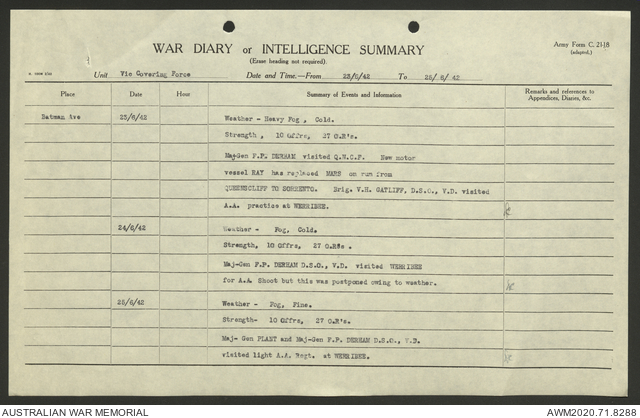 WAR DIARY or INTELLIGENCE SUMMARY
(Erase heading not required).
Army Form C. 2118
(adapted.)
Unit Vic Covering Force Date and Time.—From 23/6/42 To 25/6/42
Place Date Hour Summary of Events and Information Remarks and references to
Appendices, Diaries, &c.
Batman Ave 23/6/42 Weather - Heavy Fog, Cold.
Strength, 10 Offrs, 27 O.R's.
Maj-Gen F.P. DERHAM visited Q.N.C.F. New motor
vessel RAY has replaced MARS on run from
QUEENSCLIFF TO SORRENTO. Brig. V.H. GATLIFF, D.S.O., V.D. visited
A.A. practice at WERRIBEE.
24/6/42 Weather - Fog, Cold.
Strength, 10 Offrs, 27 O.R's.
Maj-Gen F.P. DERHAM D.S.O., V.D. visited WERRIBEE
for A.A. Shoot but this was postponed owing to weather.
25/6/42 Weather - Fog, Fine.
Strength- 10 Offrs, 27 O.R's.
Maj- Gen PLANT and Maj-Gen F.P. DERHAM D.S.O., V.D.
visited light A.A. Regt. at WERRIBEE.
AUSTRALIAN WAR MEMORIAL AWM2020.71.8288